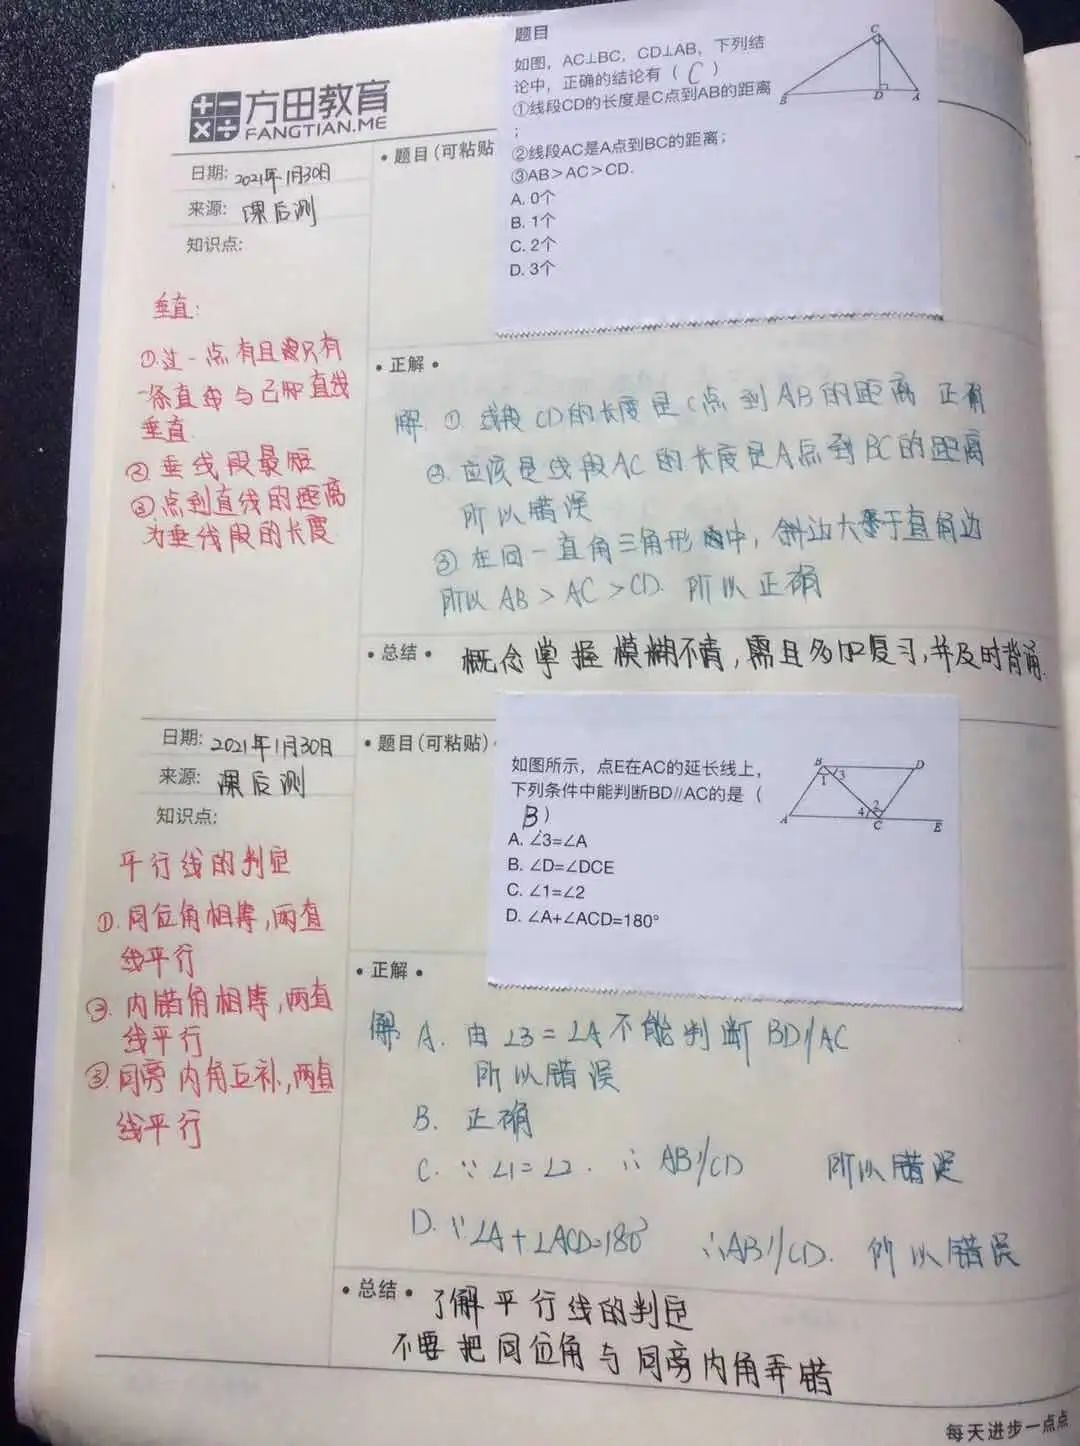 方田教育
FANGTIAN.ME
日期: 2021年1月30日
来源: 课后测
知识点:
垂直:
①.过一点有且只有
一条直线与已知直线
垂直.
②垂线段最短
③点到直线的距离
为垂线段的长度
•题目(可粘贴
题目
如图，AC⊥BC，CD⊥AB，下列结
论中，正确的结论有（ C ）
①线段CD的长度是C点到AB的距离
；
②线段AC是A点到BC的距离；
③AB＞AC＞CD.
A. 0个
B. 1个
C. 2个
D. 3个
C
B
D
A
•正解•
解 ①. 线段CD的长度是C点到AB的距离 正确
②. 应该是线段AC的长度是A点到BC的距离
所以错误
③在同一直角三角形中，斜边大于直角边
所以 AB > AC > CD. 所以正确
•总结• 概念掌握模糊不清，需且多加复习，并及时背诵.
日期: 2021年1月30日
来源: 课后测
知识点:
平行线的判定
①.同位角相等，两直
线平行
②.内错角相等，两直
线平行
③.同旁内角互补，两直
线平行
•题目(可粘贴)•
如图所示，点E在AC的延长线上，
下列条件中能判断BD//AC的是（
B ）
A. ∠3=∠A
B. ∠D=∠DCE
C. ∠1=∠2
D. ∠A+∠ACD=180°
B
D
1
3
2
4
A
C
E
•正解•
解 A. 由∠3=∠A不能判断BD//AC
所以错误
B. 正确
C. ∵ ∠1=∠2. ∴ AB//CD 所以错误
D. ∵∠A+∠ACD=180° ∴AB//CD. 所以错误
•总结• 了解平行线的判定
不要把同位角与同旁内角弄错
每天进步一点点